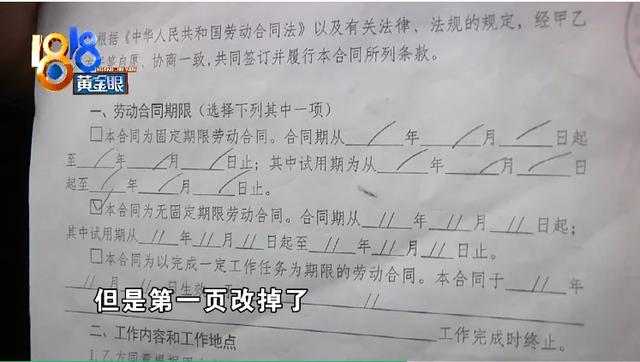 根据《中华人民共和国劳动合同法》以及有关法律、法规的规定,经甲乙
自愿、协商一致,共同签订并履行本合同所列条款。
1818
黄金眼
一、劳动合同期限(选择下列其中一项)
□本合同为固定期限劳动合同。合同期从 / 年 / 月 / 日起
至 / 年 / 月 / 日止;其中试用期为从 / 年 / 月 / 日
起至 / 年 / 月 / 日止。
☑本合同为无固定期限劳动合同。合同期从 // 年 // 月 // 日起;
其中试用期从 // 年 // 月 // 日起至 // 年 // 月 // 日止。
□本合同为以完成一定工作任务为期限的劳动合同。本合同于 // 年
// 月 // 日生效
但是第一页改掉了
//
工作完成时终止。
二、工作内容和工作地点
1.乙方同意根据